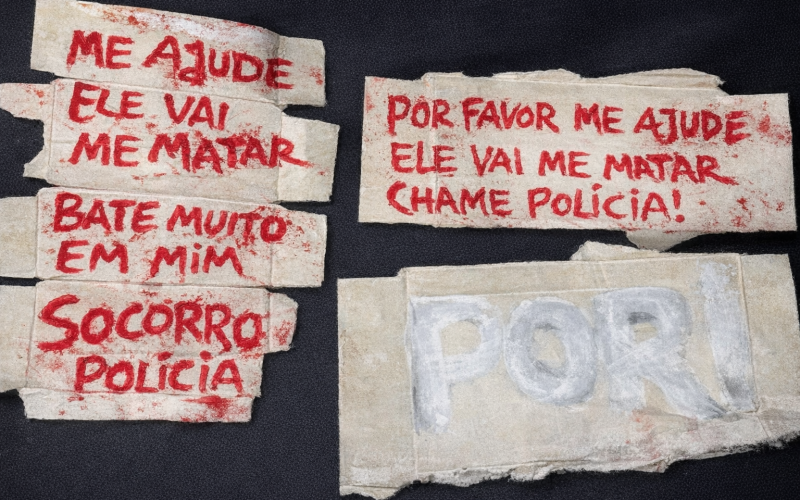 ME AJUDE
ELE VAI
ME MATAR
BATE MUITO
EM MIM
SOCORRO
POLÍCIA
POR FAVOR ME AJUDE
ELE VAI ME MATAR
CHAME POLÍCIA!
POR!